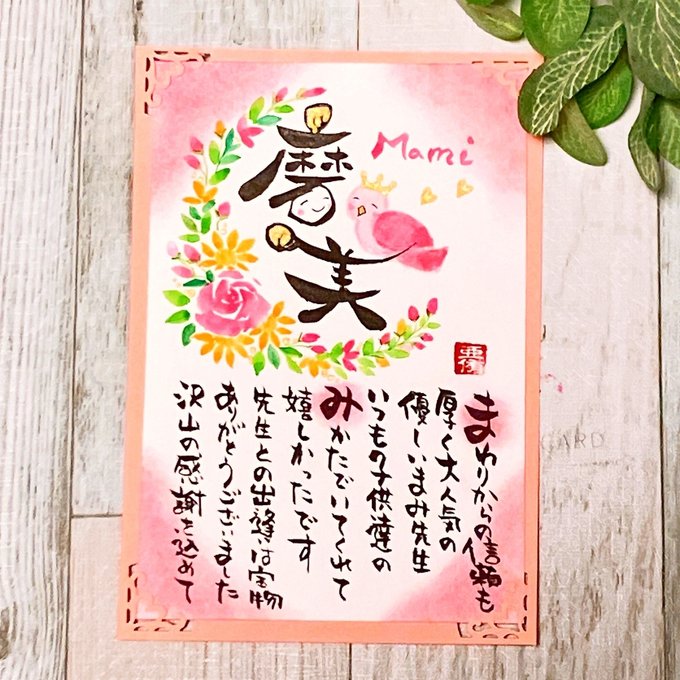 磨美
Mami
まわりからの信頼も
厚く大人気の
優しいまみ先生
いつも子供達の
みかたでいてくれて
嬉しかったです
先生との出逢いは宝物
ありがとうございました
沢山の感謝を込めて